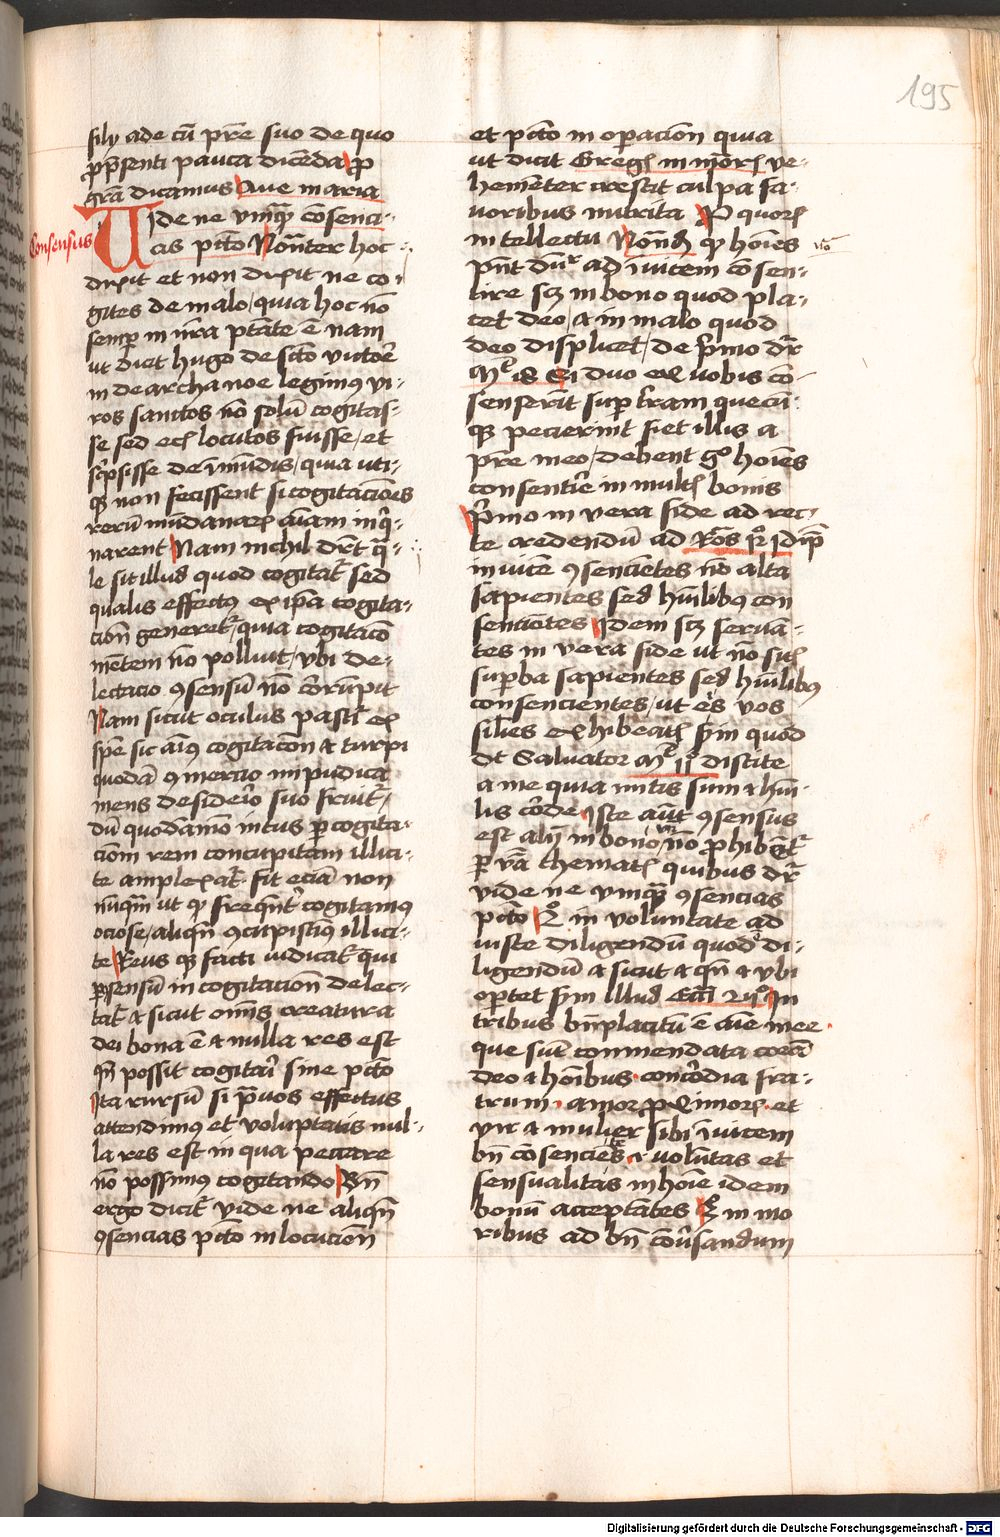 195
filij ade cū pr̄e suo de quo
p̄pn̄senti pauca dicēda p̄
gr̄a dicamus Aue maria
Consensus
Vide ne vmq̄ cōsenci-
as pctō Nōnter hoc
dixit et non dixit ne co-
gites de malo quia hoc nō
semp in nr̄a ptāte ē nam
ut dicit hugo de sctō victor̄e
in de archa noe legimꝰ vi-
ros sanctos nō solū cogitas-
se sed ecꝫ locutos fuisse et
sc̄psisse de īmūdis quia uti-
qꝫ non fecissent si cogitacīones
rerū mūdanarꝫ aīam inq̄-
narent Nam nichil dr̄t q̄-
le sit illud quod cogitat̄ sed
qualis effectꝰ ex ip̄a cogita-
ciōn generet̄ quia cogitacō
mētem nō polluit vbi de-
lectacio ꝯsensū nō corrūpit
Nam sicut oculus past̄ ex
spē sic aīꝰ cogitacōn a turpi
quodā ꝯmercio impudica
mens desiderio suo fruit̄
dū quodāmō intus p cogita-
ciōm rem concupitam illici-
te amplexat̄ fit eciā non
nūqm̄ ut qꝫ freqn̄t̄ cogitamꝰ
ociose aliqn̄ ꝯcupiscimꝰ illici-
te Reus qꝫ facti iudicat̄ qui
p sensū in cogitaciōn delec-
tat̄ a sicut om̄s creatura
dei bona ē a nulla res est
qn̄ possit cogitari sine pctō
Ita rursū si p̄uos effectus
attendimꝰ et voluptatis nul-
la res est in qua peccare
nō possimꝰ cogitando Bn̄
ergo dicit̄ vide ne aliqn̄
ꝯsencias pctō in locuciōn
et pctō in operacion quia
ut dicit Gregꝫ in morꝫ ve-
hemēter crescit culpa fa-
uoribus nutrita P quorꝫ
intellectu Nōnd qꝫ hoīes
pn̄t dur̄ ad īuicem cōsen-
tire scꝫ in bono quod pla-
cet deo a in malo quod
deo displicet de p̄mo dr̄
Mt̄ 18 Si duo ex vobis cō-
senserīt sup trām quecū-
qꝫ pecierint fiet illis a
pr̄e meo debent gͦ hoīes
consentir̄e in multꝫ bonis
p̄mo in vera fide ad rec-
te credendū ad Roōs 12 Idip̄
inuicē ꝯsencientes nō alta
sapientes sed hūilibꝰ con
sencientes Idem scꝫ seruā-
tes in vera fide ut nō sitꝫ
supba sapientes sed hūilibꝰ
consencientes ut eis vos
siles exhibeatꝫ sm̄ quod
dt Saluator Mt̄ 11 discite
a me quia mitis sum a hūi-
lis corde Iste aūt ꝯsensus
est alij in bono nō phibet̄
p vā thematꝫ quibus dr̄
vide ne vmq̄ ꝯsencias
pctō 2ͦ in voluntate ad
iuste diligendū quod di-
ligendū a sicut a qn̄ a vbi
oportet sm̄ illud Eccī 25 In
tribus bn̄placitū ē aīe mee
que sūt commendata corā
deo a hoībus concōrdia fra-
trum amor p̄ximorꝫ et
vir a mulier sibi īuicem
bn̄ cōsencies a volūtas et
sensualitas in hoīe idem
bonū acceptātes 3 in mo
ribus ad bn̄ cōūsandum
Digitalisierung gefördert durch die Deutsche Forschungsgemeinschaft - DFG